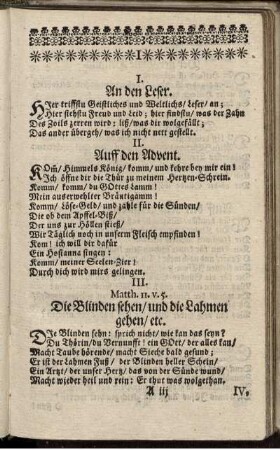 I
I.
An den Leser.
HIer triffstu Geistliches und Weltlichs/ Leser/ an;
Hier siehstu Freud und Leid; hier findstu/ was der Zahn
Des Zoils zerren wird; ließ/ was dir wolgefällt;
Das ander übergeh/ was ich nicht nett gestellt.
II.
Auff den Advent.
KOm̃/ Himmels König/ komm/ und kehre bey mir ein!
Ich öffne dir die Thür zu meinem Hertzen-Schrein.
Komm/ komm/ du GOttes Lamm!
Mein auserwehlter Bräutigamm!
Komm/ Löse-Geld/ und zahle für die Sünden/
Die ob dem Apffel-Biß/
Der uns zur Höllen stieß/
Wir Täglich noch in unserm Fleisch empfinden!
Kom! ich will dir dafür
Ein Hosianna singen:
Komm/ meiner Seelen-Zier!
Durch dich wird mirs gelingen.
III.
Matth. 11. v. 5.
Die Blinden sehen/ und die Lahmen
gehen/ etc.
DIe Blinden sehn: sprich nicht/ wie kan das seyn?
Du Thörin/ du Vernunfft: ein GOtt/ der alles kan/
Macht Taube hörende/ macht Sieche bald gesund;
Er ist der Lahmen Fuß/ der Blinden heller Schein/
Ein Artzt/ der unser Hertz/ das von der Sünde wund/
Macht wieder heil und rein: Er thut was wolgethan.
A iij IV.